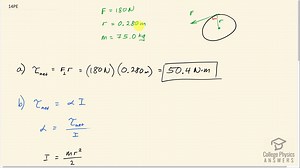 14PE
F = 180 N
r = 0.280 m
m = 75.0 kg
F
r
a) τnet = F⊥r = (180 N)(0.280 m) = 50.4 N·m
b) τnet = α I
α = τnet / I
I = mr² / 2
College Physics
ANSWERS